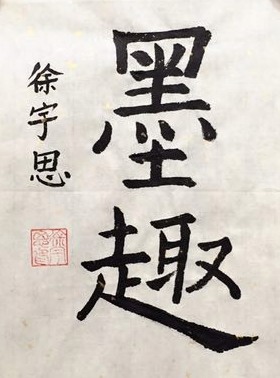 墨趣
徐宇思